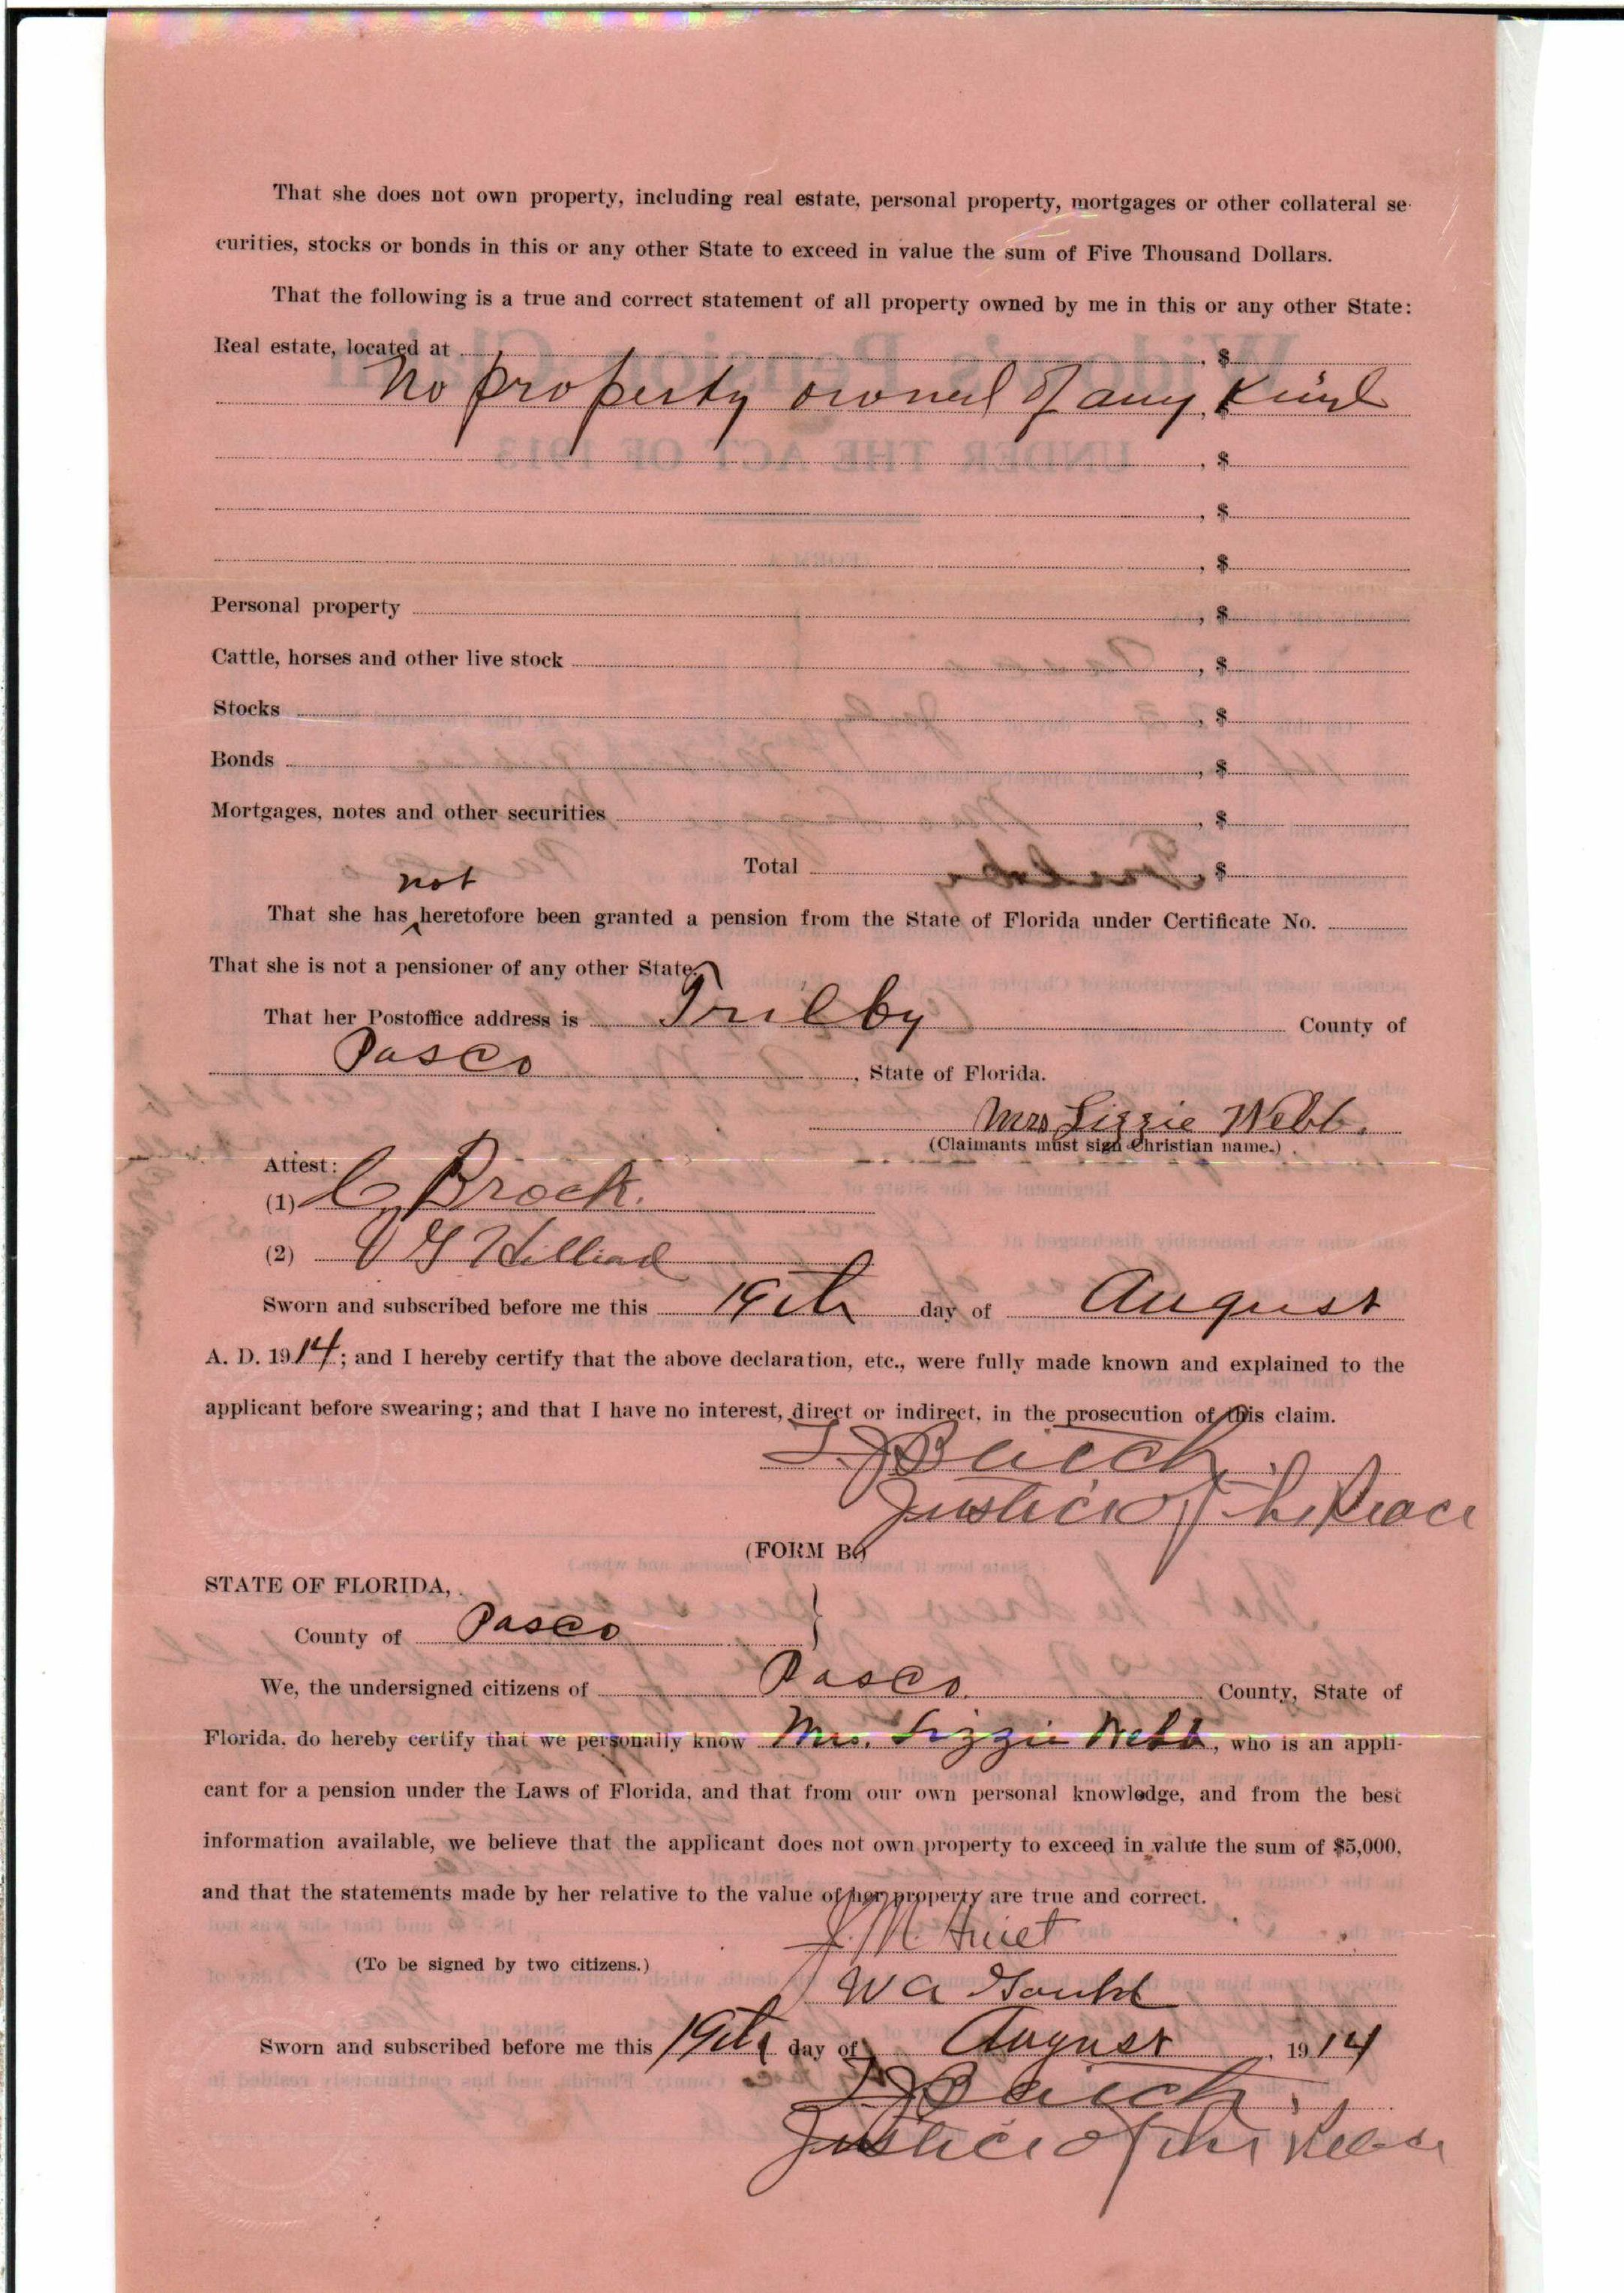 That she does not own property, including real estate, personal property, mortgages or other collateral se-
curities, stocks or bonds in this or any other State to exceed in value the sum of Five Thousand Dollars.
That the following is a true and correct statement of all property owned by me in this or any other State:
Real estate, located at , $
No property owned of any Kind
, $
, $
, $
Personal property , $
Cattle, horses and other live stock , $
Stocks , $
Bonds , $
Mortgages, notes and other securities , $
Total $
not
That she has ‸ heretofore been granted a pension from the State of Florida under Certificate No.
That she is not a pensioner of any other State.
That her Postoffice address is Trilby County of
Pasco , State of Florida.
Mrs Lizzie Webb.
(Claimants must sign Christian name.)
Attest:
(1) C Brock.
(2) Hilliard
Sworn and subscribed before me this 19th day of August
A. D. 1914; and I hereby certify that the above declaration, etc., were fully made known and explained to the
applicant before swearing; and that I have no interest, direct or indirect, in the prosecution of this claim.
Justice of the Peace
(FORM B)
STATE OF FLORIDA,
County of Pasco }
We, the undersigned citizens of Pasco County, State of
Florida, do hereby certify that we personally know Mrs. Lizzie Webb, who is an appli-
cant for a pension under the Laws of Florida, and that from our own personal knowledge, and from the best
information available, we believe that the applicant does not own property to exceed in value the sum of $5,000,
and that the statements made by her relative to the value of her property are true and correct.
J. M.
(To be signed by two citizens.)
W A Gould
Sworn and subscribed before me this 19th day of August, 1914
Justice of the Peace